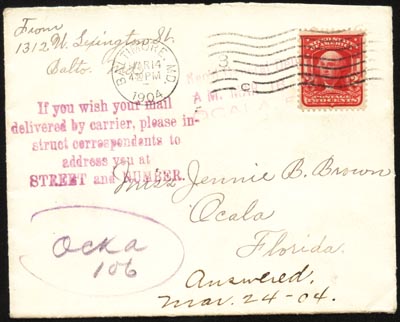 From
1312 W. Lexington St.
Balto.
BALTIMORE, MD.
MAR 14
4 PM
1904
3
C
OCALA
A.M. MAR 16
If you wish your mail
delivered by carrier, please in-
struct correspondents to
address you at
STREET and NUMBER.
POSTAGE
TWO CENTS
Miss Jennie B. Brown
Ocala
Florida.
Ocka
106
Answered,
Mar. 24-04.